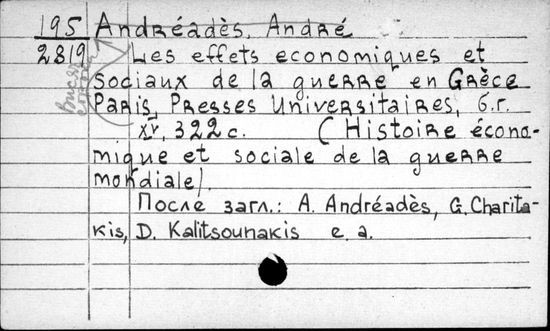 195 Andréadès, André
2819 Les effets economiques et
sociaux de la guerre en Grèce
Paris, Presses Universitaires, б.г.
XV, 322 с. (Histoire écono-
mique et sociale de la guerre
mondiale).
После загл.: A. Andréadès, G. Charita-
kis, D. Kalitsounakis e. a.